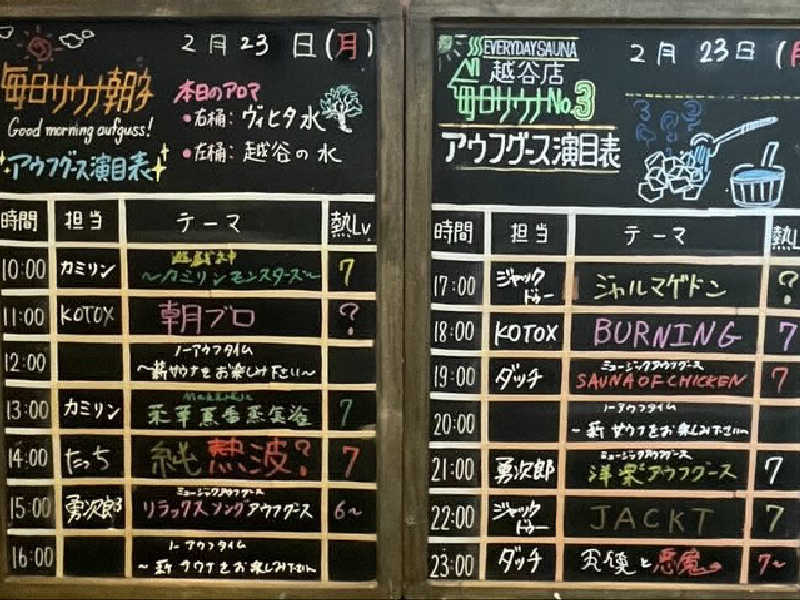 2月23日(月)
毎日サウナ朝子
Good morning aufguss!
アウフグース演目表
本日のアロマ
•右桶:ヴィヒタ水
•左桶:越谷の水
時間 担当 テーマ 熱Lv
10:00 カミリン 遊戯王中 ～カミリンモンスターズ～ 7
11:00 KOTOX 朝ブロ ?
12:00 ノーアウフタイム
～薪サウナをお楽しみ下さい～
13:00 カミリン 7
14:00 たっち 純熱波? 7
15:00 勇次郎 ミュージックアウフグース
リラックスソングアウフグース 6～
16:00 ノーアウフタイム
～薪サウナをお楽しみ下さい～
EVERYDAYSAUNA
越谷店
2月23日(月
毎日サウナNo.3
アウフグース演目表
時間 担当 テーマ 熱L
17:00 ジャックドゥー ジャルマゲドン ?
18:00 KOTOX BURNING 7
19:00 ダッチ ミュージックアウフグース
SAUNA OF CHICKEN 7
20:00 ノーアウフタイム
～薪サウナをお楽しみ下さい～
21:00 勇次郎 ミュージックアウフグース
洋楽アウフグース 7
22:00 ジャックドゥー JACKT 7
23:00 ダッチ 天使と悪魔 7～